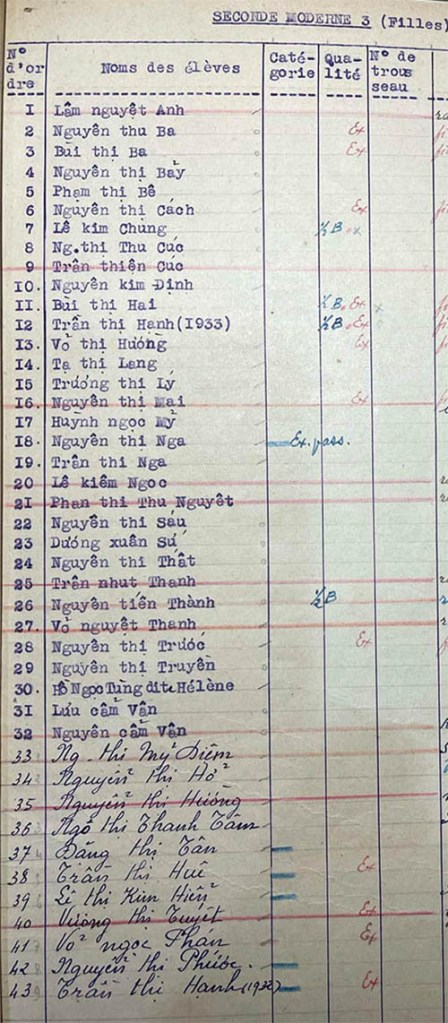 SECONDE MODERNE 3 (Filles)
N° d'or dre Noms des élèves Caté- gorie Qua- lité N° de trous seau
1 Lâm nguyệt Anh
2 Nguyên thu Ba Ex
3 Bùi thị Ba Ex
4 Nguyên thi Bảy
5 Phạm thị Bê
6 Nguyên thi Cách Ex
7 Lê kim Chung ½ B
8 Ng.thị Thu Cúc
9 Trân thiện Cúc
10. Nguyên kim Đinh
11. Bùi thị Hai ½ B. Ex
12 Trân thị Hạnh(1933) ½ B. Ex
13. Vỏ thị Hướng Ex
14. Tạ thi Lang
15 Trướng thi Lý
16. Nguyên thi Mai Ex
17 Huỳnh ngọc Mỷ
18. Nguyên thi Nga Ex. pass.
19. Trân thi Nga
20 Lê kiêm Ngọc
21 Phan thi Thu Nguyêt
22 Nguyên thi Sáu
23 Dướng xuân Sú
24 Nguyên thi Thât
25 Trân nhut Thanh
26 Nguyên tiên Thành ½ B
27. Vỏ nguyệt Thanh
28 Nguyên thi Trước Ex
29 Nguyên thi Truyên
30. Hồ Ngọc Tùng dite Hélène
31 Lưu cẩm Vân
32 Nguyên cẩm Vân
33 Ng. thi Mỹ Diệm
34 Nguyễn thi Hổ
35 Nguyễn thi Hướng
36 Ngô thi Thanh Tâm
37 Đăng thị Tân
38 Trần thi Huê Ex
39 Lê thi Kim Hiền
40 Vương thi Tuyết Ex
41 Võ ngọc Phán Ex
42 Nguyễn thi Phước.
43 Trần thi Hạnh (1932) Ex